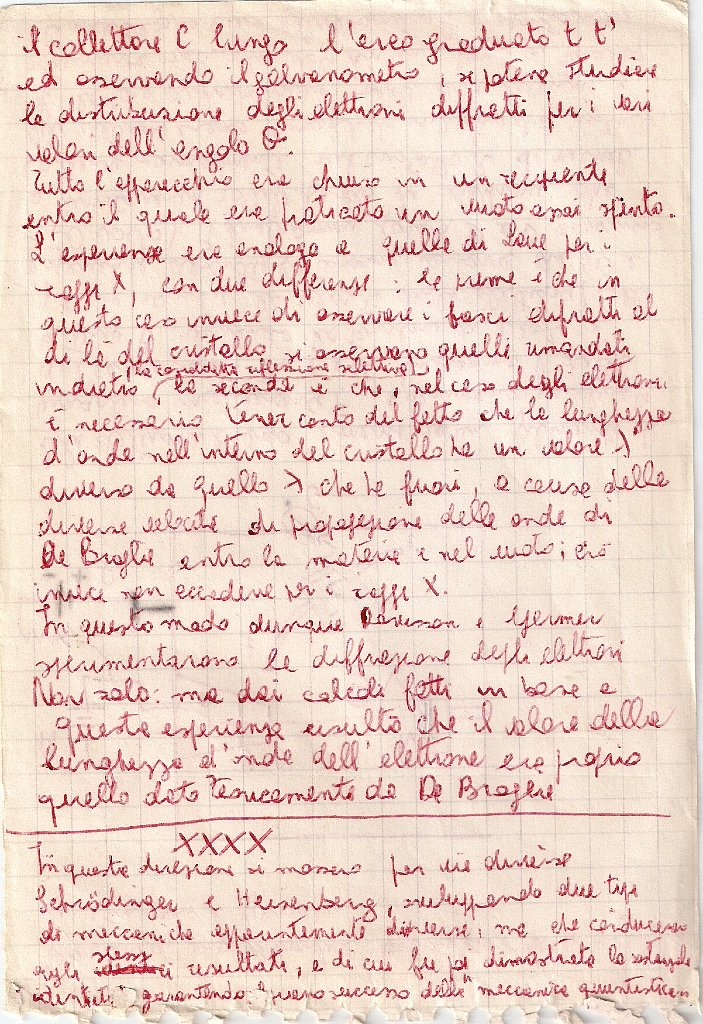 il collettore C lungo l'arco graduato t t'
ed osservando il galvanometro, si poteva studiare
la distribuzione degli elettroni diffratti per i vari
valori dell'angolo θ.
Tutto l'apparecchio era chiuso in un recipiente
entro il quale era praticato un vuoto assai spinto.
L'esperienza era analoga a quella di Laue per i
raggi X, con due differenze: la prima è che in
questo caso invece di osservare i fasci difratti al
di là del cristallo si osservano quelli rimandati
(la cosiddetta riflessione selettiva)
indietro, la seconda è che, nel caso degli elettroni
è necessario tener conto del fatto che la lunghezza
d'onda nell'interno del cristallo ha un valore λ'
diverso da quello λ che ha fuori, a causa della
diversa velocità di propagazione delle onde di
De Broglie entro la materia e nel vuoto; ciò
invece non accadeva per i raggi X.
In questo modo dunque Davisson e Germer
sperimentarono la diffrazione degli elettroni
Non solo: ma dai calcoli fatti in base a
questa esperienza risultò che il valore della
lunghezza d'onda dell'elettrone era proprio
quello dato teoricamente da De
XXXX
In questa direzione si mossero per vie diverse
Schrödinger e Heisenberg, sviluppando due tipi
di meccaniche apparentemente diverse, ma che conducevano
agli stessi risultati, e di cui fu poi dimostrata la sostanziale
identità, garantendo successo della "meccanica quantistica"